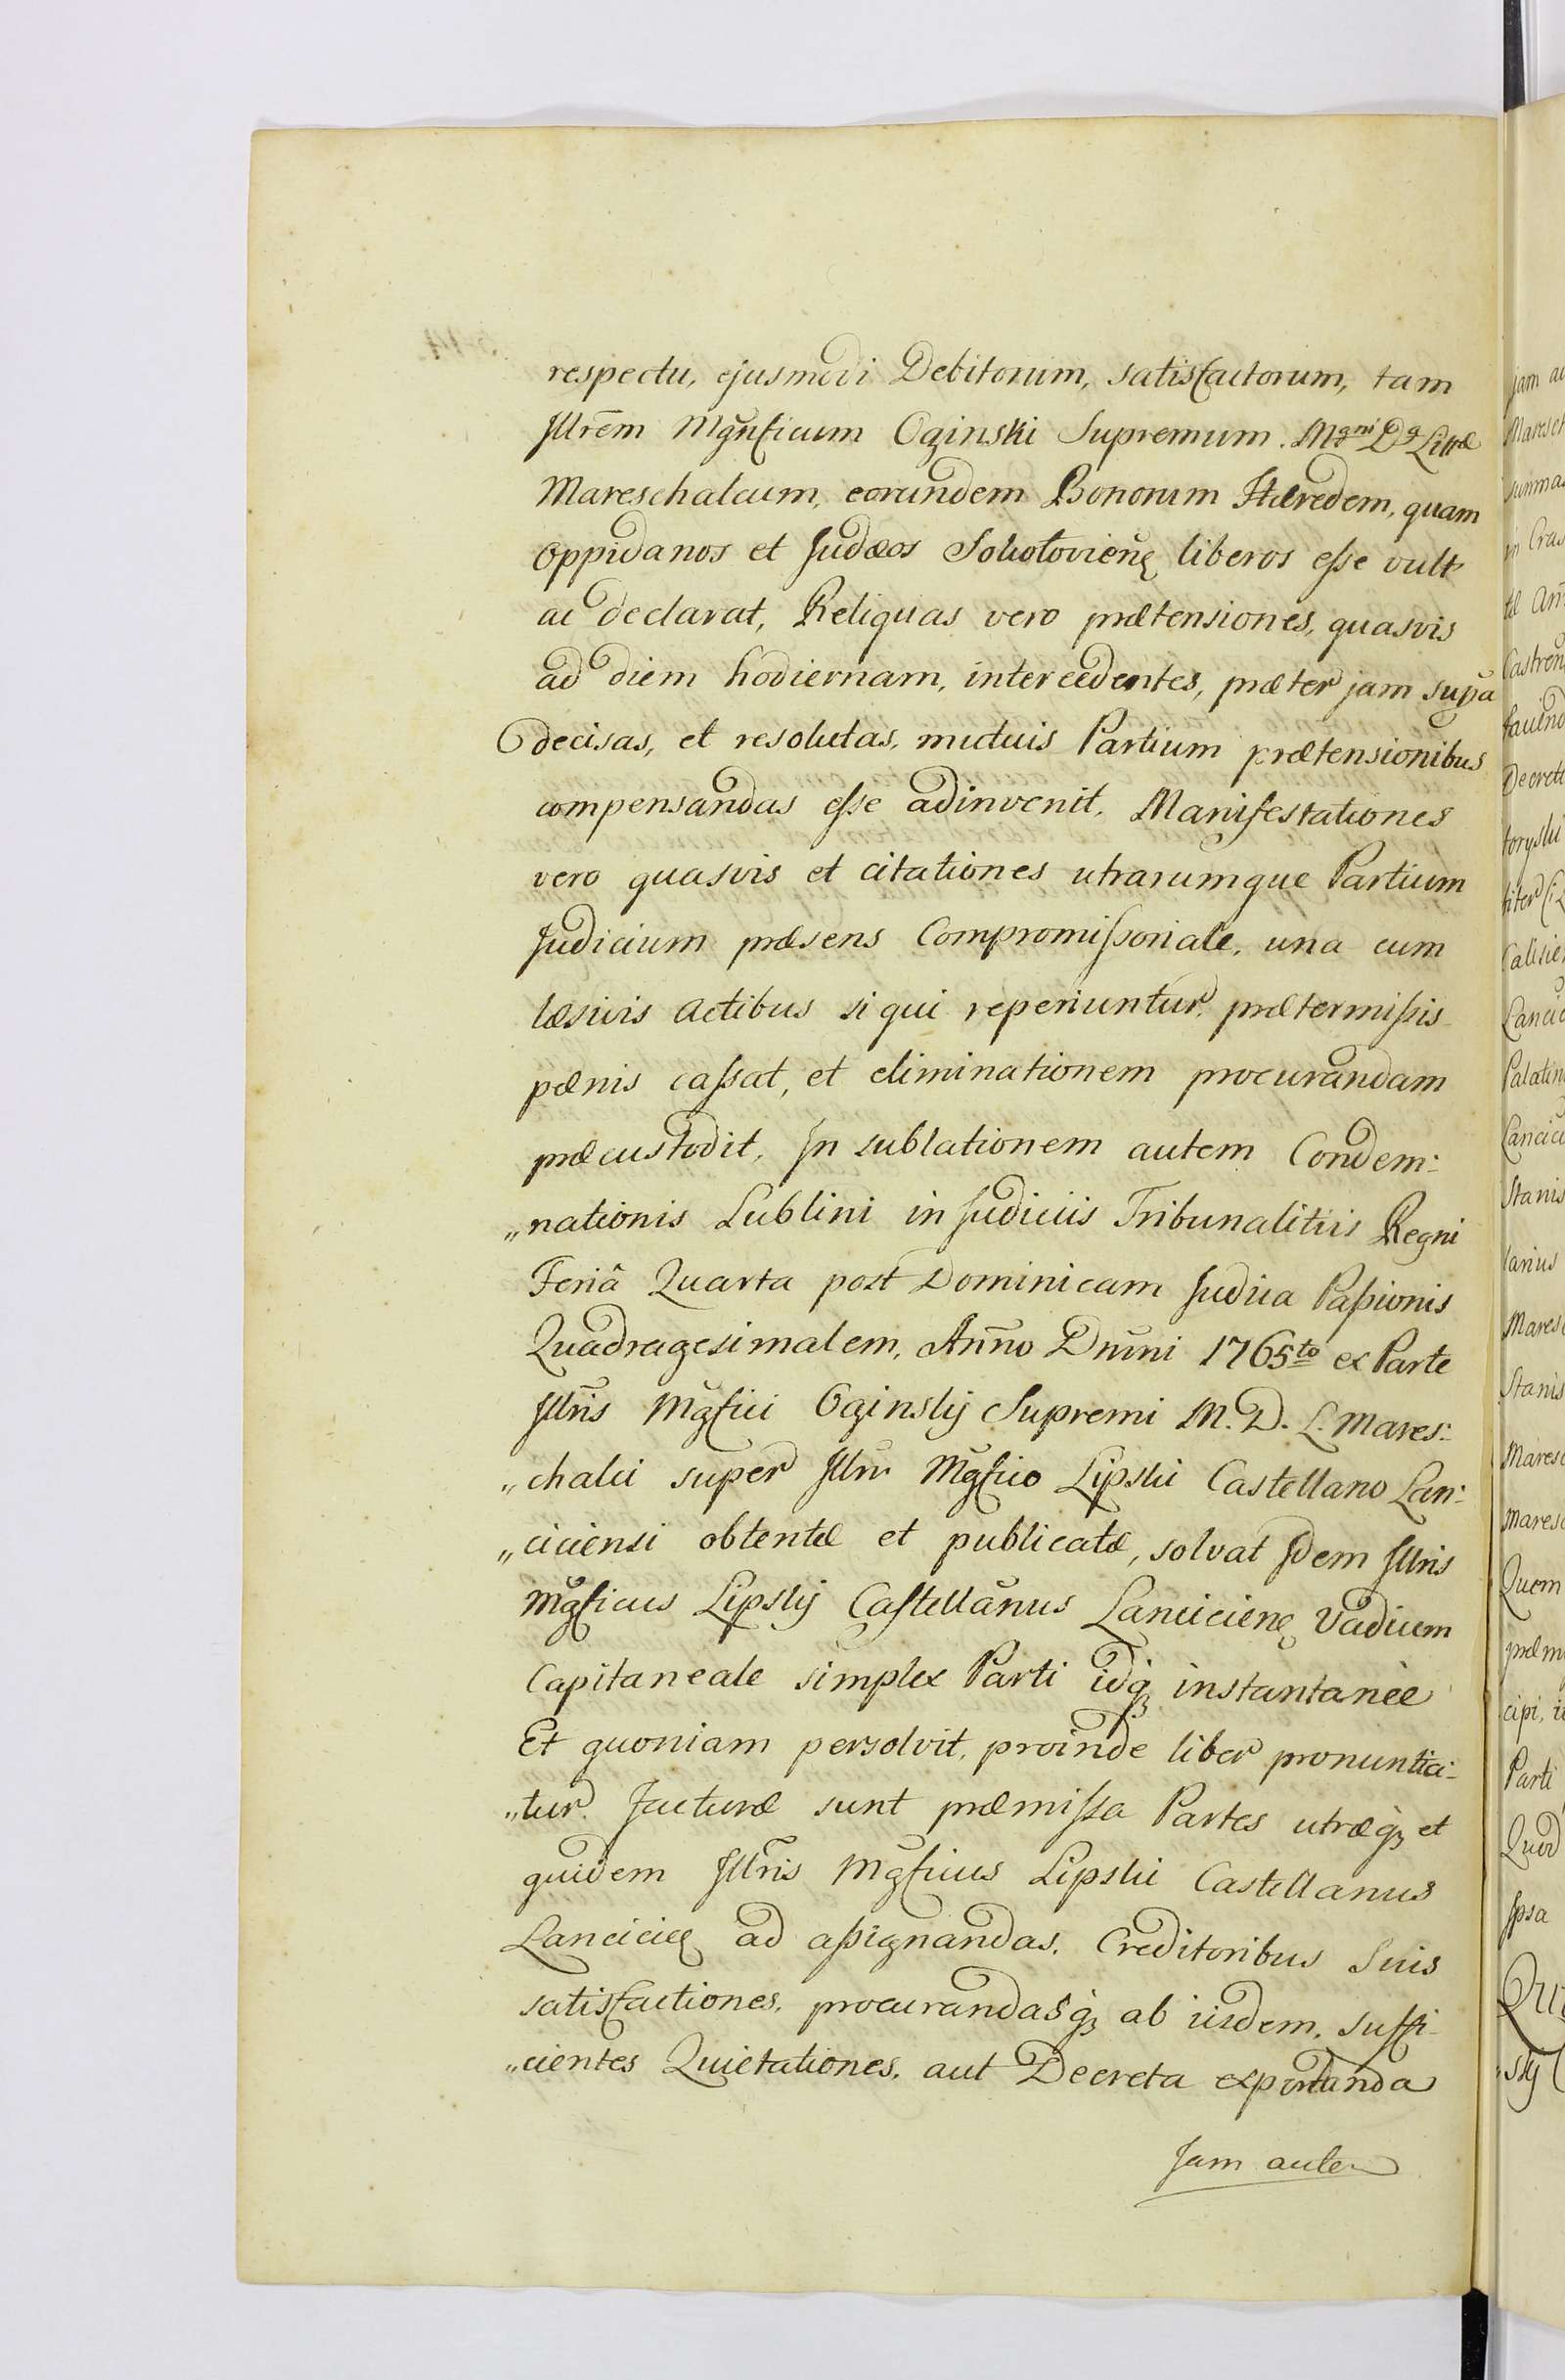 respectu, ejusmodi Debitorum, satisfactorum, tam
Illrem Mgnficum Oginski Supremum Mgni Dg Littæ
Mareschalcum, eorundem Bonorum Hæredem, quam
Oppidanos et Judæos Sokołovien liberos esse vult
ac declarat, Reliquas vero prætensiones, quasvis
ad diem hodiernam, intercedentes, præter jam supa
decisas, et resolutas, mutuis Partium prætensionibus
compensandas esse adinvenit, Manifestationes
vero quasvis et citationes utrarumque Partium
Judicium præsens Compromissoriale, una cum
læsivis actibus si qui reperiuntur, prætermissis
pænis cassat, et eliminationem procurandam
præcustodit, In sublationem autem Condem:
„nationis Lublini in Judiciis Tribunalitiis Regni
Feriâ Quarta post Dominicam Judica Passionis
Quadragesimalem, Anno Dnini 1765to ex Parte
Illris Mgfici Oginskij Supremi M. D. L. Mares:
„chalci super Illri Mgfico Lipski Castellano Lan:
„ciciensi obtentæ et publicatæ, solvat Idem Illris
Mgficus Lipskij Castellanus Lancicien Vadium
Capitaneale simplex Parti idq; instantanee
Et quoniam persolvit, proinde liber pronuntia:
„tur. Facturæ sunt præmissa Partes utræq; et
quidem Illris Mgficus Lipski Castellanus
Lancicien ad assignandas, Creditoribus Suis
satisfactiones, procurandasq; ab iisdem, suffi-
„cientes Quietationes, aut Decreta exportanda
Jam autem
jam
Maresch
summa
in Cras
tæ An
Castren
faciend
Decret
toryski
Calisien
Lancic
Palatin
Lancici
Stanis
larius
Maresc
Stanis
Maresc
Maresc
Quem
præm
cipi,
Parti
Quod
Ipsa